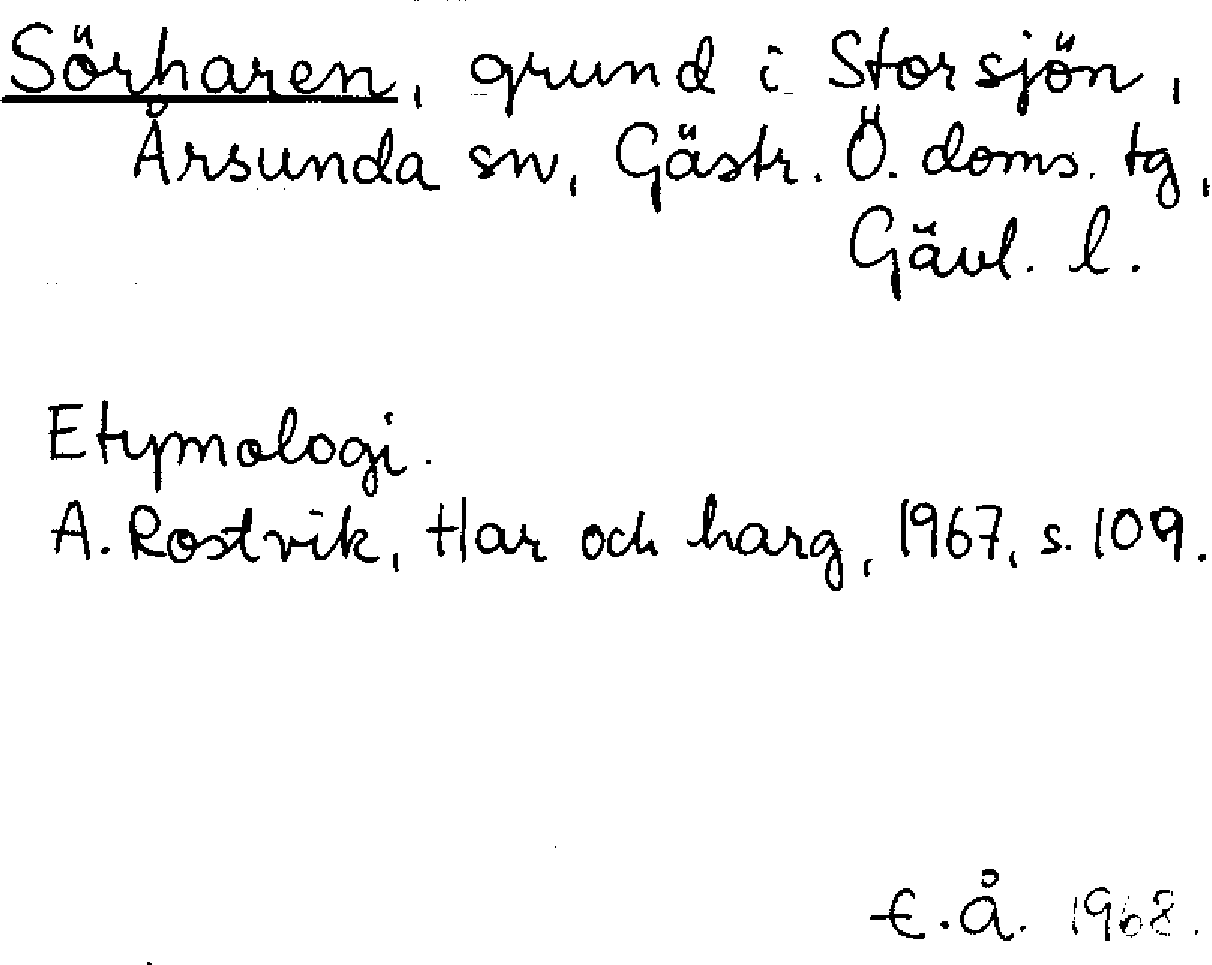 Sörharen, grund i Storsjön,
Årsunda sn, Gästr. Ö. doms. tg,
Gävl. l.
Etymologi.
A. Rostvik, Har och harg, 1967, s. 109.
E.Å. 1968.